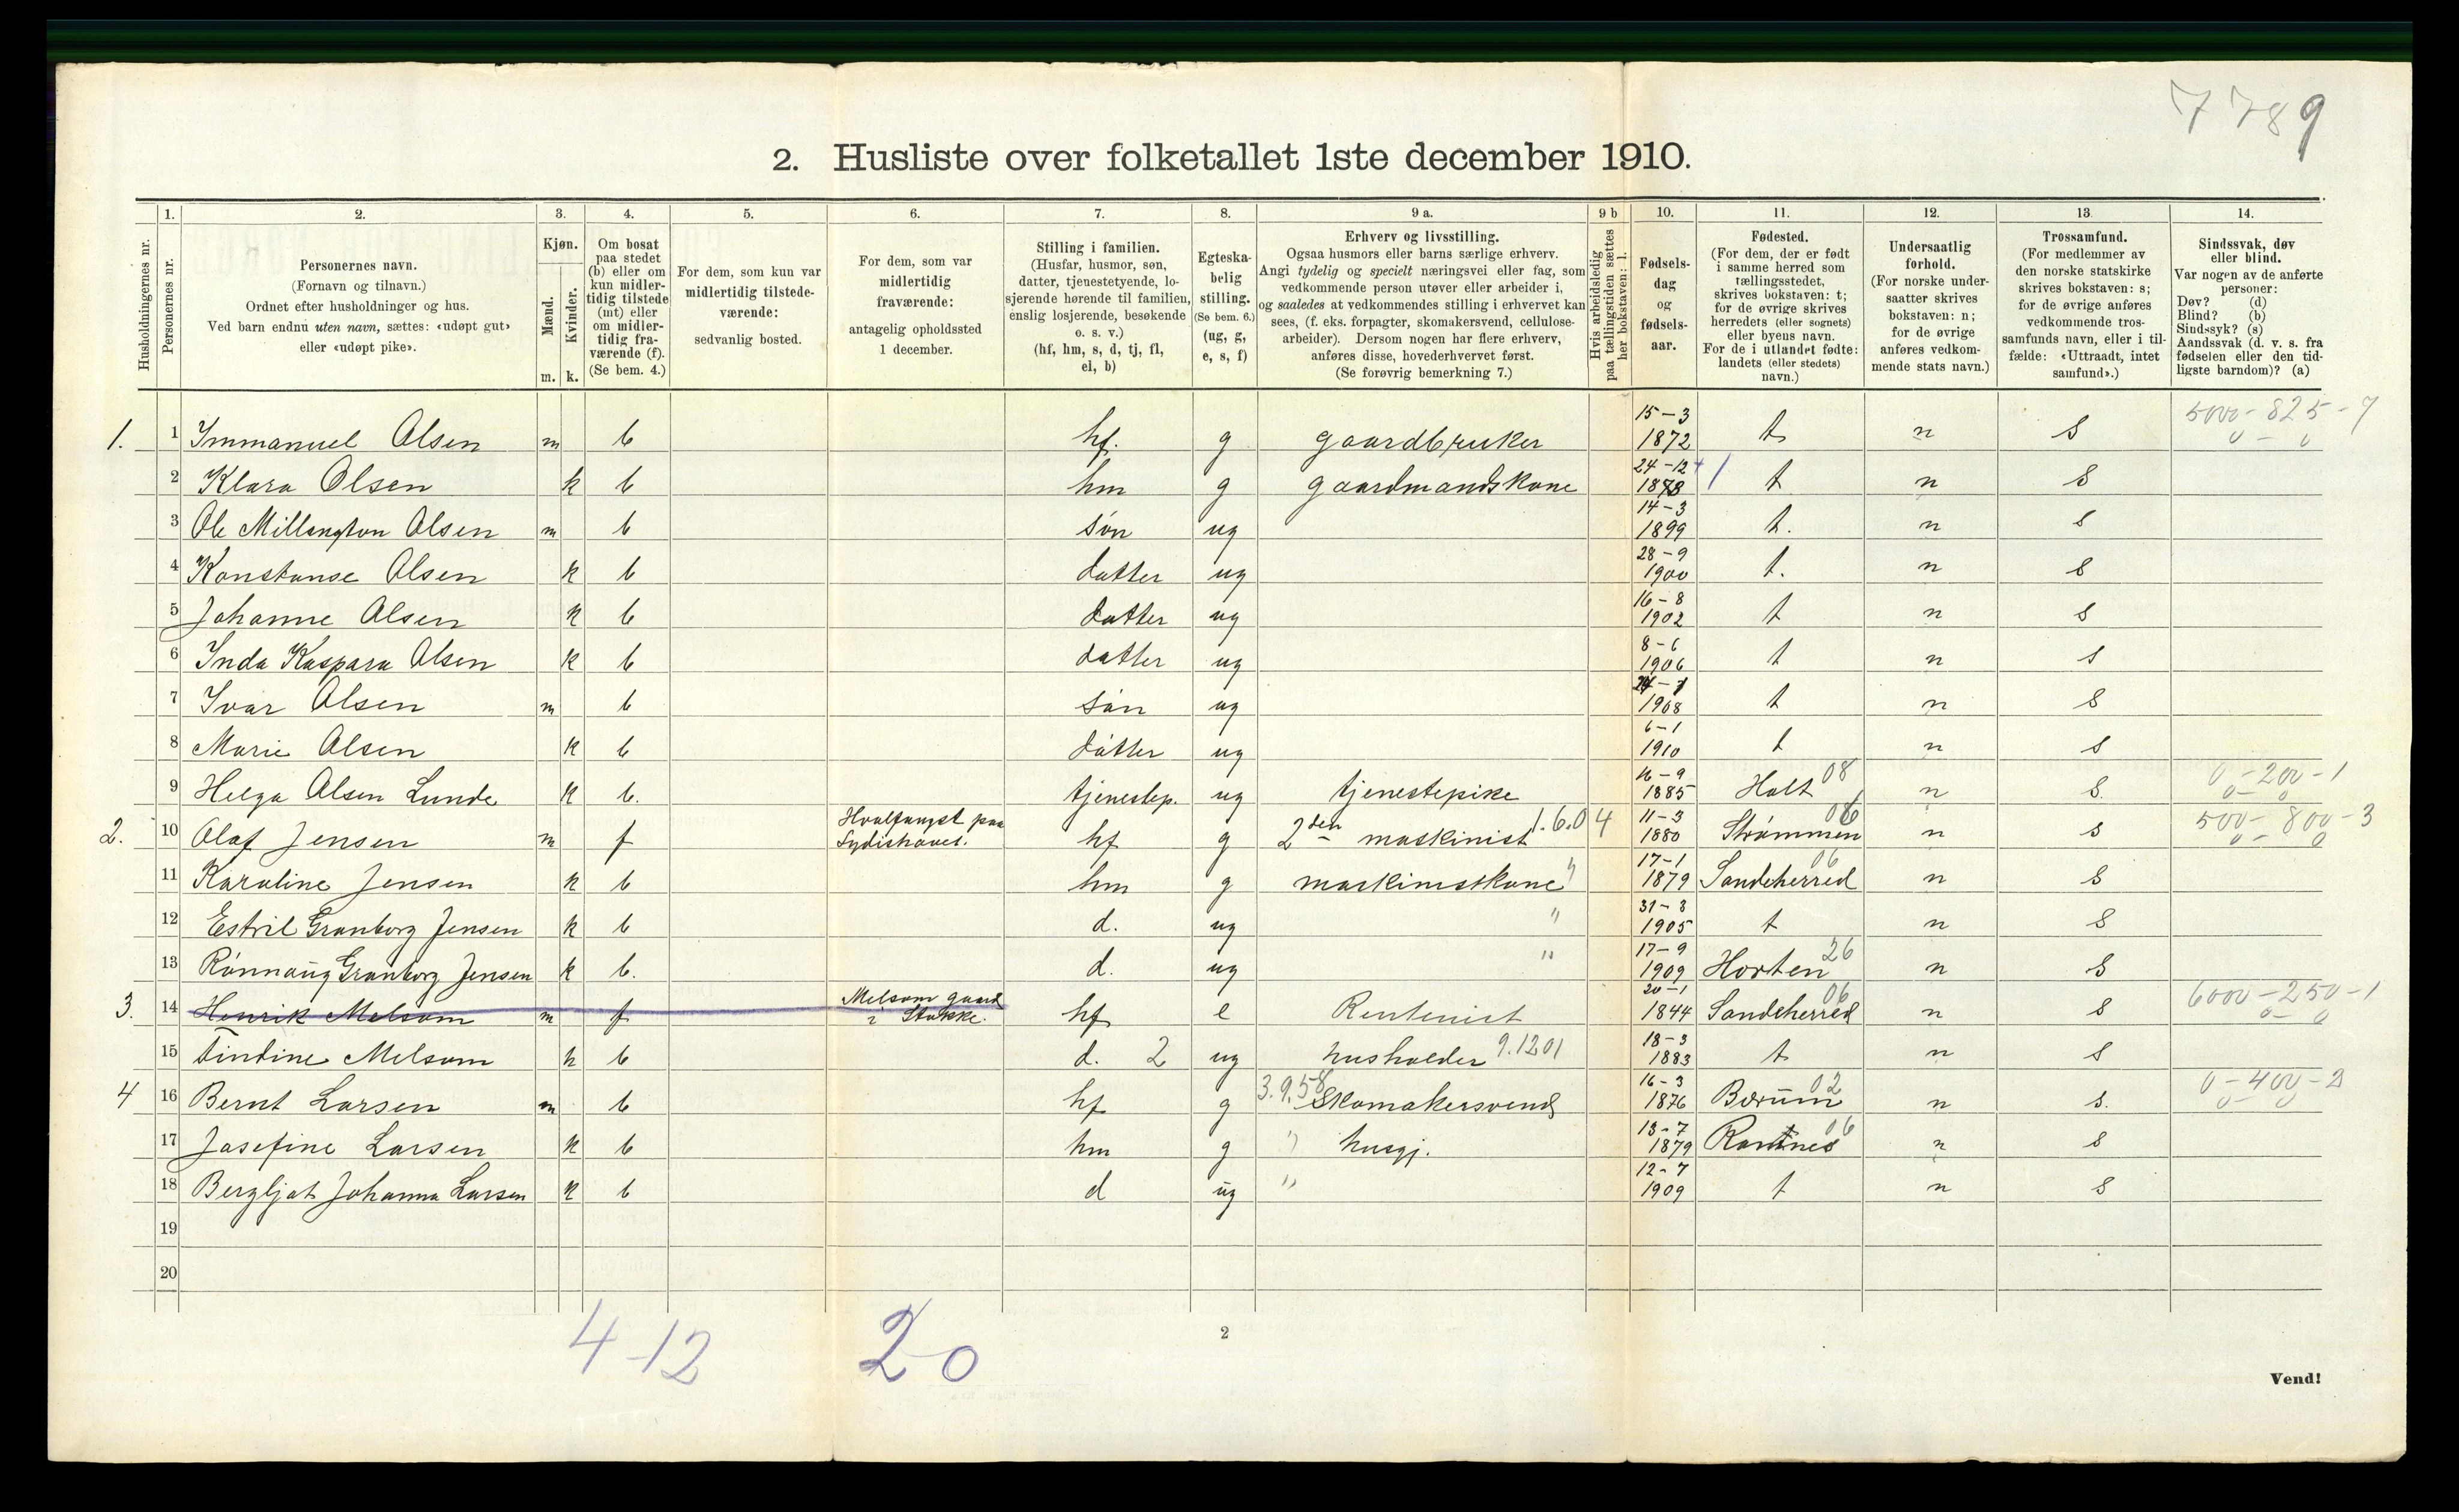 7789
2. Husliste over folketallet 1ste december 1910.
Husholdningernes nr.
1. Personernes nr.
2. Personernes navn. (Fornavn og tilnavn.) Ordnet efter husholdninger og hus. Ved barn endnu uten navn, sættes: «udøpt gut» eller «udøpt pike».
3. Kjøn. Mænd. m. Kvinder. k.
4. Om bosat paa stedet (b) eller om kun midlertidig tilstede (mt) eller om midlertidig fraværende (f). (Se bem. 4.)
5. For dem, som kun var midlertidig tilstedeværende: sedvanlig bosted.
6. For dem, som var midlertidig fraværende: antagelig opholdssted 1 december.
7. Stilling i familien. (Husfar, husmor, søn, datter, tjenestetyende, losjerende hørende til familien, enslig losjerende, besøkende o. s. v.) (hf, hm, s, d, tj, fl, el, b)
8. Egteskabelig stilling. (Se bem. 6.) (ug, g, e, s, f)
9 a. Erhverv og livsstilling. Ogsaa husmors eller barns særlige erhverv. Angi tydelig og specielt næringsvei eller fag, som vedkommende person utøver eller arbeider i, og saaledes at vedkommendes stilling i erhvervet kan sees, (f. eks. forpagter, skomakersvend, cellulosearbeider). Dersom nogen har flere erhverv, anføres disse, hovederhvervet først. (Se forøvrig bemerkning 7.)
9 b Hvis arbeidsledig paa tællingstiden sættes her bokstaven: l.
10. Fødselsdag og fødselsaar.
11. Fødested. (For dem, der er født i samme herred som tællingsstedet, skrives bokstaven: t; for de øvrige skrives herredets (eller sognets) eller byens navn. For de i utlandet fødte: landets (eller stedets) navn.)
12. Undersaatlig forhold. (For norske undersaatter skrives bokstaven: n; for de øvrige anføres vedkommende stats navn.)
13. Trossamfund. (For medlemmer av den norske statskirke skrives bokstaven: s; for de øvrige anføres vedkommende trossamfunds navn, eller i tilfælde: «Uttraadt, intet samfund».)
14. Sindssvak, døv eller blind. Var nogen av de anførte personer: Døv? (d) Blind? (b) Sindssyk? (s) Aandssvak (d. v. s. fra fødselen eller den tidligste barndom)? (a)
1. 1 Immanuel Olsen m b hf. g gaardbruker 15-3 1872 t n s 5000-825-7 0-0
2 Klara Olsen k b hm g gaardmandskone 24-12 1878 t n s
3 Ole Millengton Olsen m b søn ug 14-3 1899 t. n s
4 Konstanse Olsen k b datter ug 28-9 1900 t. n s
5 Johanne Olsen k b datter ug 16-8 1902 t n s
6 Inda Kaspara Olsen k b datter ug 8-6 1906 t n s
7 Ivar Olsen m b søn ug 1908 t n s
8 Marie Olsen k b datter ug 6-1 1910 t n s
9 Helga Olsen Lunde k b. tjenestep. ug tjenestepike 16-9 1885 Holt 08 n s. 0-200-1 0-0
2. 10 Olaf Jensen m f Hvalfangst paa Sydishavet. hf g 2den maskinist 1.6.04 11-3 1880 Strømmen 06 n s 500-800-3 0-0
11 Karoline Jensen k b hm g maskinistkone " 17-1 1879 Sandeherred 06 n s
12 Estril Granborg Jensen k b d. ug " 31-8 1905 t n s
13 Rønnaug Granborg Jensen k b. d. ug " 17-9 1909 Horten 26 n s
3. 14 Henrik Melsom m f Melsom gaard i Stokke. hf e Rentenist 20-1 1844 Sandeherred 06 n s 6000-250-1 0-0
15 Dindine Melsom k b d. 2 ug husholder 9.1201 18-3 1883 t n s
4 16 Bernt Larsen m b hf g 3.9.58 Skomakersvend 16-3 1876 Bærum 02 n s. 0-400-2 0-0
17 Josefine Larsen k b hm g " husgj. 13-7 1879 Ramnes 06 n s
18 Bergljot Johanna Larsen k b d ug " 12-7 1909 t n s
19
20
4-12 20
2
Vend!